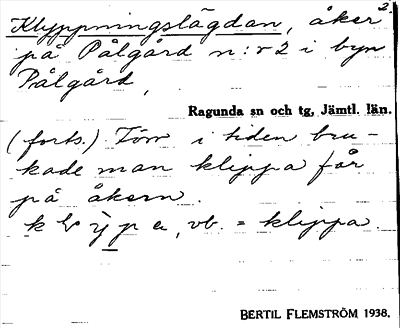 2.
Klyppningslägdan, åker
på Pålgård n:r 2 i byn
Pålgård,
Ragunda sn och tg, Jämtl. län.
(forts.) Förr i tiden bru-
kade man klippa får
på åkern.
vb. = klippa.
BERTIL FLEMSTRÖM 1938.